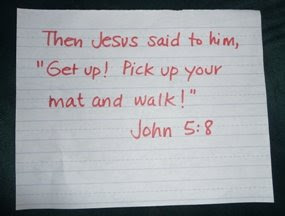 Then Jesus said to him,
"Get up! Pick up your
mat and walk!"
John 5:8